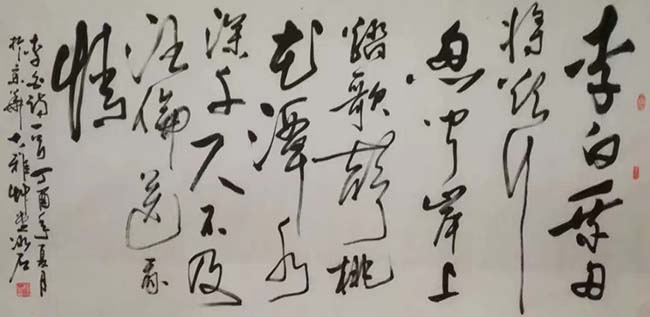 李白乘舟
将欲行
忽闻岸上
踏歌聲桃
花潭水
深千尺不及
汪倫送我
情
李白詩一首丁酉年夏月
於京華大雅艸堂冰石